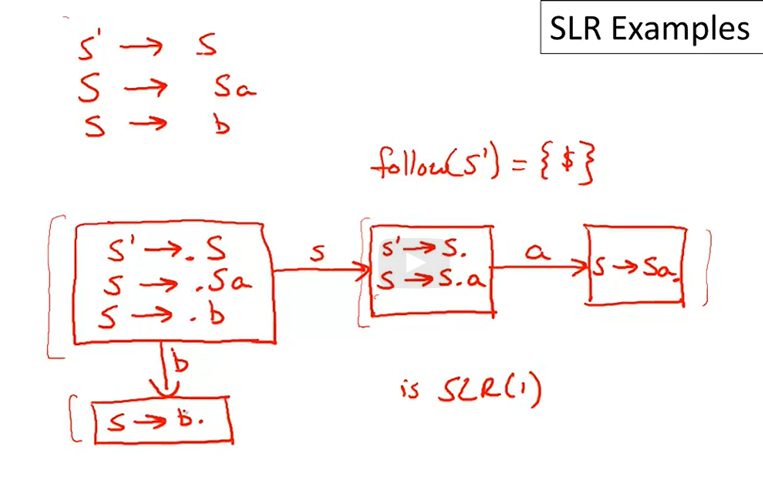 SLR Examples
S' → S
S → Sa
S → b
follow(S') = {$}
S' → .S
S → .Sa
S → .b
S
S' → S.
S → S.a
a
S → Sa.
b
S → b.
is SLR(1)